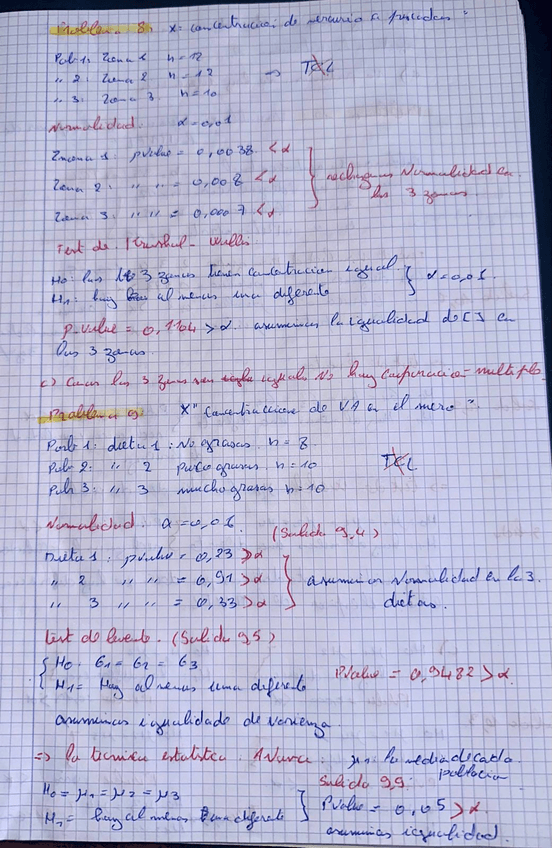 Problema 8: X= concentracion de mercurio en pescados "
Pob 1: Zona 1 n = 12
" 2: Zona 2 n = 12 → TCL
" 3: Zona 3 n = 10
Normalidad. α = 0,01
Zona 1: pvalue = 0,0038 < α
Zona 2: " " = 0,008 < α } rechazamos Normalidad en
Zona 3: " " = 0,0007 < α las 3 zonas.
Test de Kruskal - Wallis
H0: las 3 zonas tienen concentracion igual
H1: hay al menos una diferente } α = 0,01.
P-value = 0,1104 > α. asumimos la igualdad de [ ] en
las 3 zonas.
c) Como las 3 zonas son iguales No hay comparacion multiple
Problema 9: X" Concentracion de VA en el mero "
Pob 1: dieta 1: No grasas n = 8
Pob 2: " 2 poco grasas n = 10 TCL
Pob 3: " 3 mucho grasas n = 10
Normalidad. α = 0,01 (Salida 9,4)
Dieta 1: pvalue = 0,23 > α
" 2 " " = 0,91 > α } asumimos Normalidad en la 3
" 3 " " = 0,33 > α dietas.
test de levene. (Salida 9,5)
H0: σ1 = σ2 = σ3
H1= Hay al menos una diferente Pvalue = 0,9482 > α.
asumimos igualdade de varianza
⇒ la tecnica estatistica: Anova. μ1: la media de cada
poblacion
H0 = μ1 = μ2 = μ3 Salida 9.9:
H1 = hay al menos una diferente } Pvalue = 0,05 > α.
asumimos igualdad.